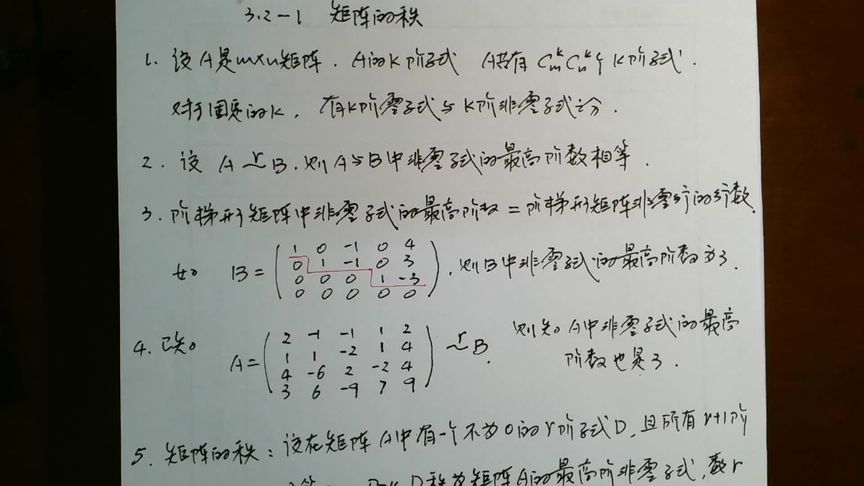 3.2-1 矩阵的秩
1. 设A是m×n矩阵. A的K阶子式 A共有 CₘᵏCₙᵏ个 K阶子式.
对于固定的K, 有K阶零子式与K阶非零子式之分.
2. 设 A ~r B, 则A与B中非零子式的最高阶数相等.
3. 阶梯形矩阵中非零子式的最高阶数 = 阶梯形矩阵非零行的行数.
如 B = ( 1 0 -1 0 4
0 1 -1 0 3
0 0 0 1 -3
0 0 0 0 0 ), 则B中非零子式的最高阶数为3.
4. 已知 A = ( 2 -1 -1 1 2
1 1 -2 1 4
4 -6 2 -2 4
3 6 -9 7 9 ) ~r B. 则知A中非零子式的最高
阶数也是3.
5. 矩阵的秩: 设在矩阵A中有一个不为0的r阶子式D, 且所有r+1阶
D称为矩阵A的最高阶非零子式, 数r